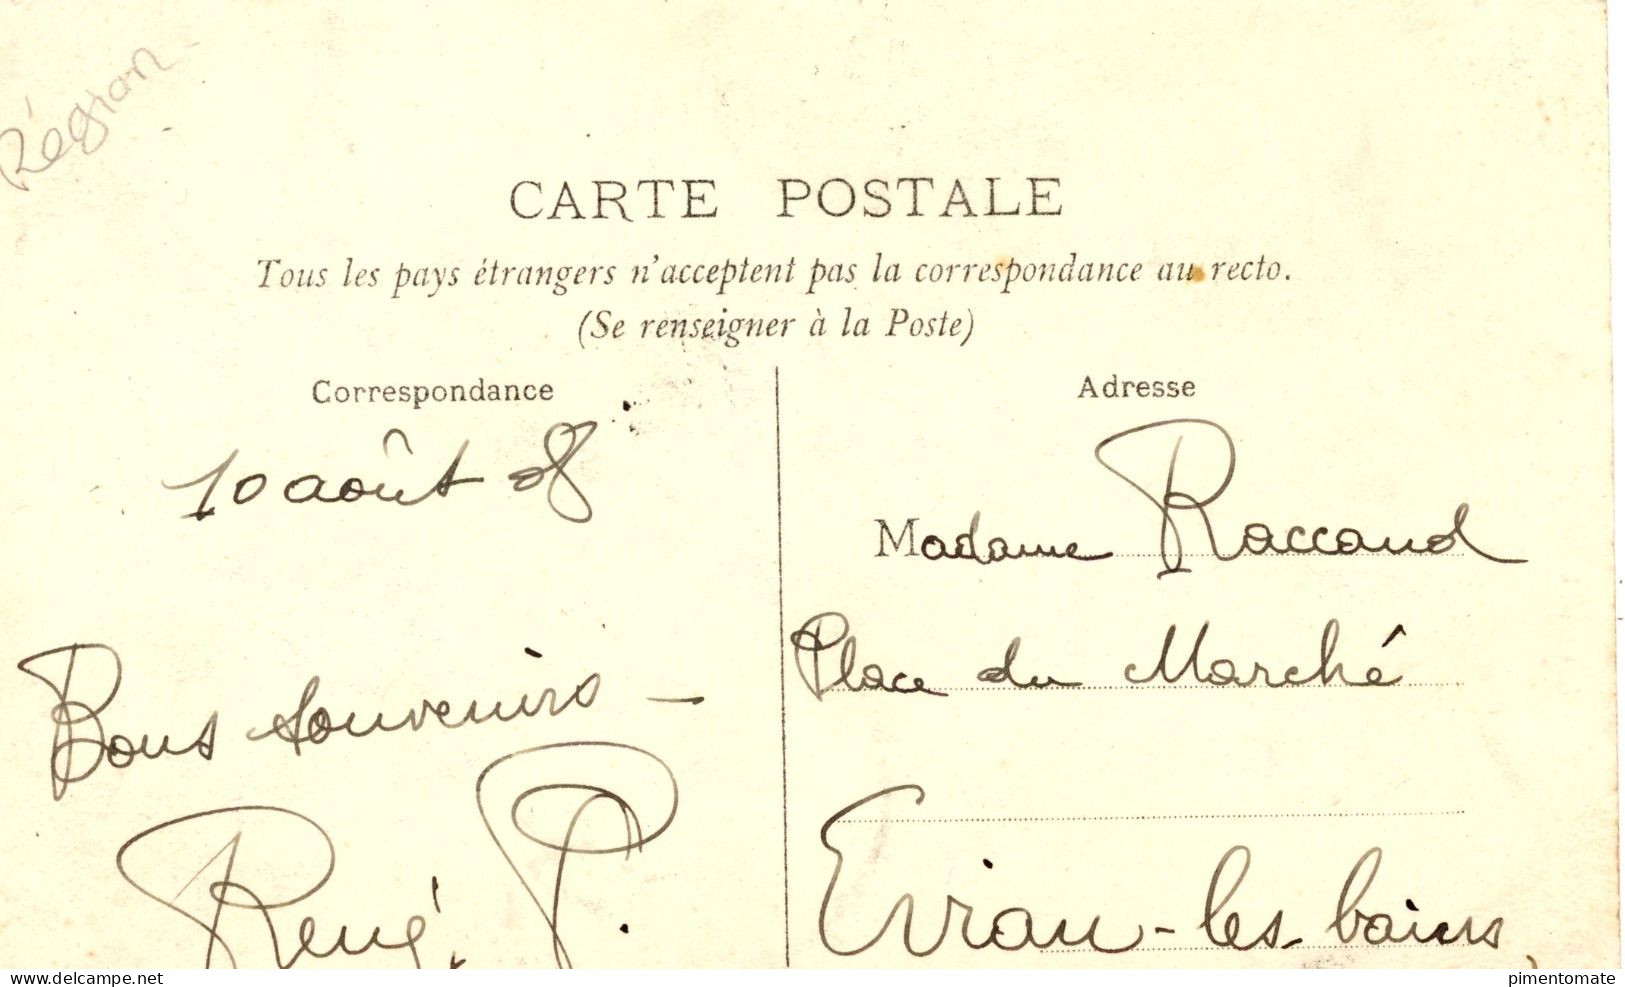 Région
CARTE POSTALE
Tous les pays étrangers n'acceptent pas la correspondance au recto.
(Se renseigner à la Poste)
Correspondance
10 août 08
Bons souvenirs —
René P.
Adresse
Madame Raccaud
Place du Marché
Evian-les-bains
delcampe.net
pimentomate